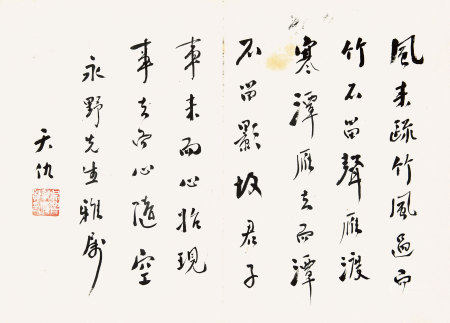 風来疏竹風過而
竹不留聲雁渡
寒潭雁去而潭
不留影故君子
事来而心始現
事去而心隨空
永野先生雅屬
天仇